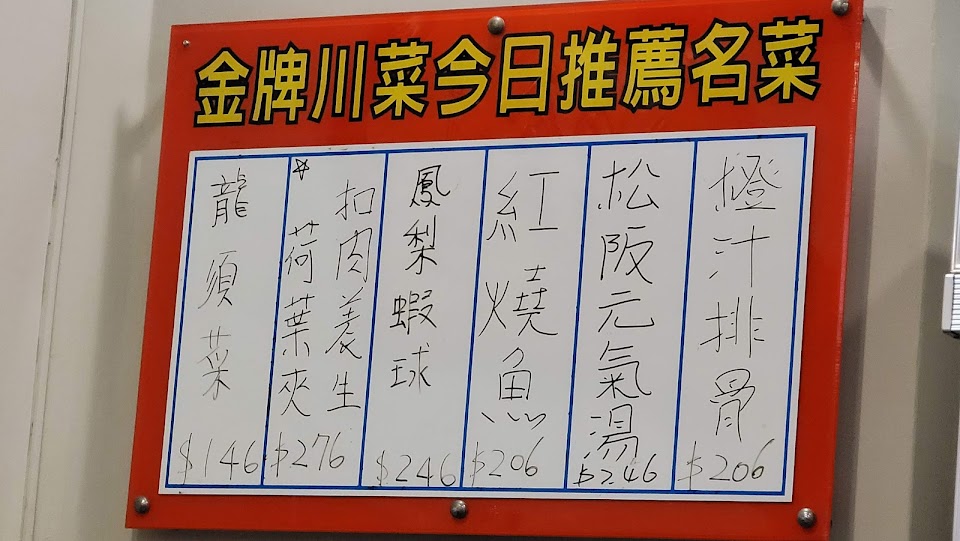 金牌川菜今日推薦名菜
橙汁排骨
$206
松阪元氣湯
$246
紅燒魚
$206
鳳梨蝦球
$246
扣肉養生
荷葉夾
$276
龍須菜
$146